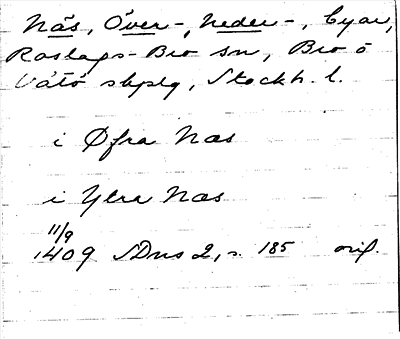 Näs, Över-, Neder-, byar,
Roslags-Bro sn, Bro o
Vätö skplg, Stockh. l.
i Øfra Næs
i Ytra Næs
11/9
1409 SDns 2, s. 185 orig.